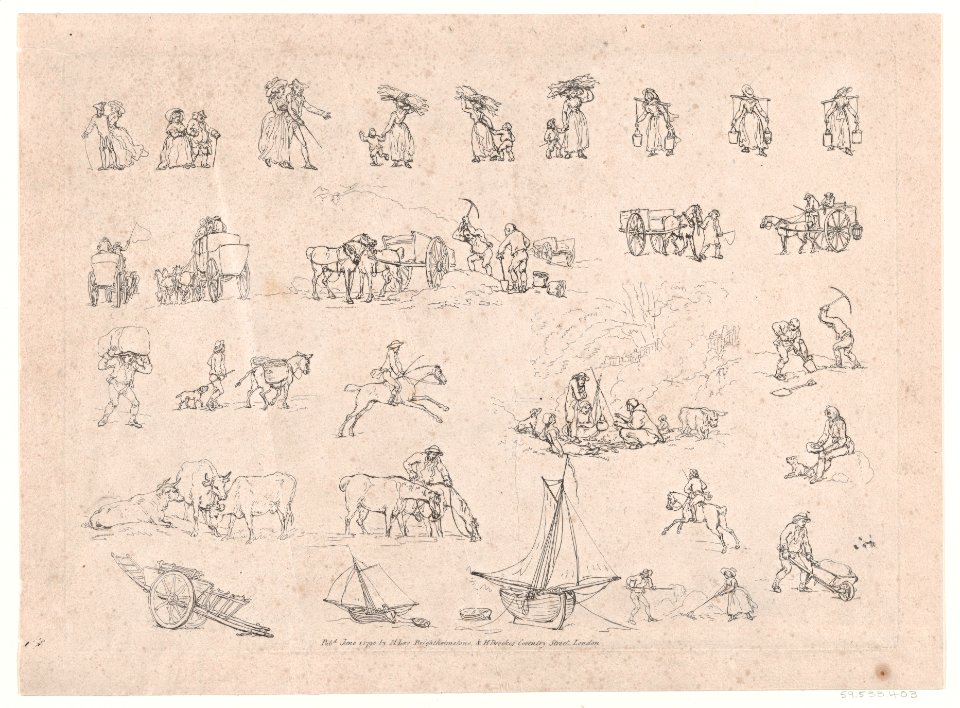 Pub.d June 1790 by Brighthelmstone, & H Brookes Coventry Street, London
59.533.403